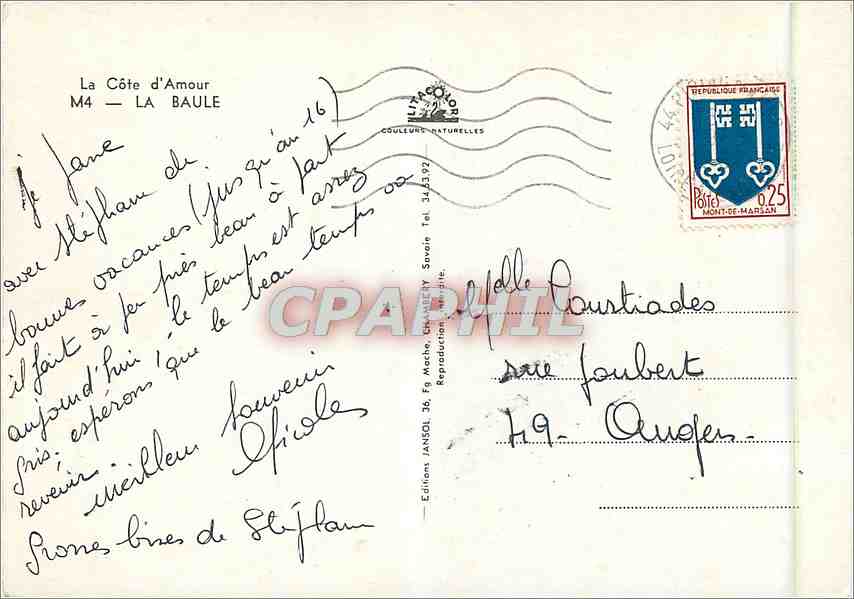 La Côte d'Amour
M4 — LA BAULE
Je passe
avec Stéphane de
bonnes vacances (jusqu'au 16)
il fait à peu près beau à part
aujourd'hui, le temps est assez
gris. espérons que le beau temps va
revenir.
Meilleur souvenir
Nicolas
Grosses bises de Stéphane
LITACOLOR
COULEURS NATURELLES
Editions JANSOL, 36, Fg Mache, CHAMBERY Savoie Tel. 34.63.92
Reproduction interdite.
CPAPHIL
44
REPUBLIQUE FRANÇAISE
POSTES 0,25
MONT-DE-MARSAN
Melle Coustiades
rue Joubert
49 - Angers